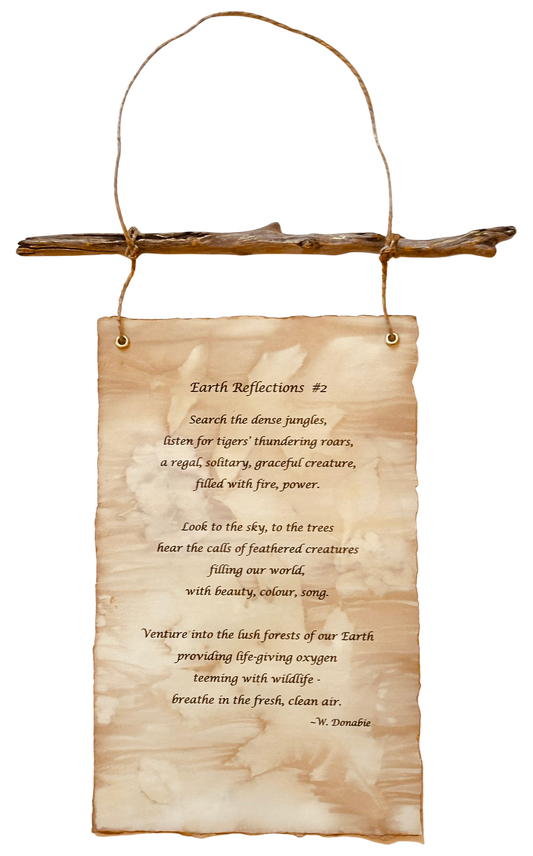 Earth Reflections #2
Search the dense jungles,
listen for tigers' thundering roars,
a regal, solitary, graceful creature,
filled with fire, power.
Look to the sky, to the trees
hear the calls of feathered creatures
filling our world,
with beauty, colour, song.
Venture into the lush forests of our Earth
providing life-giving oxygen
teeming with wildlife -
breathe in the fresh, clean air.
~W. Donabie